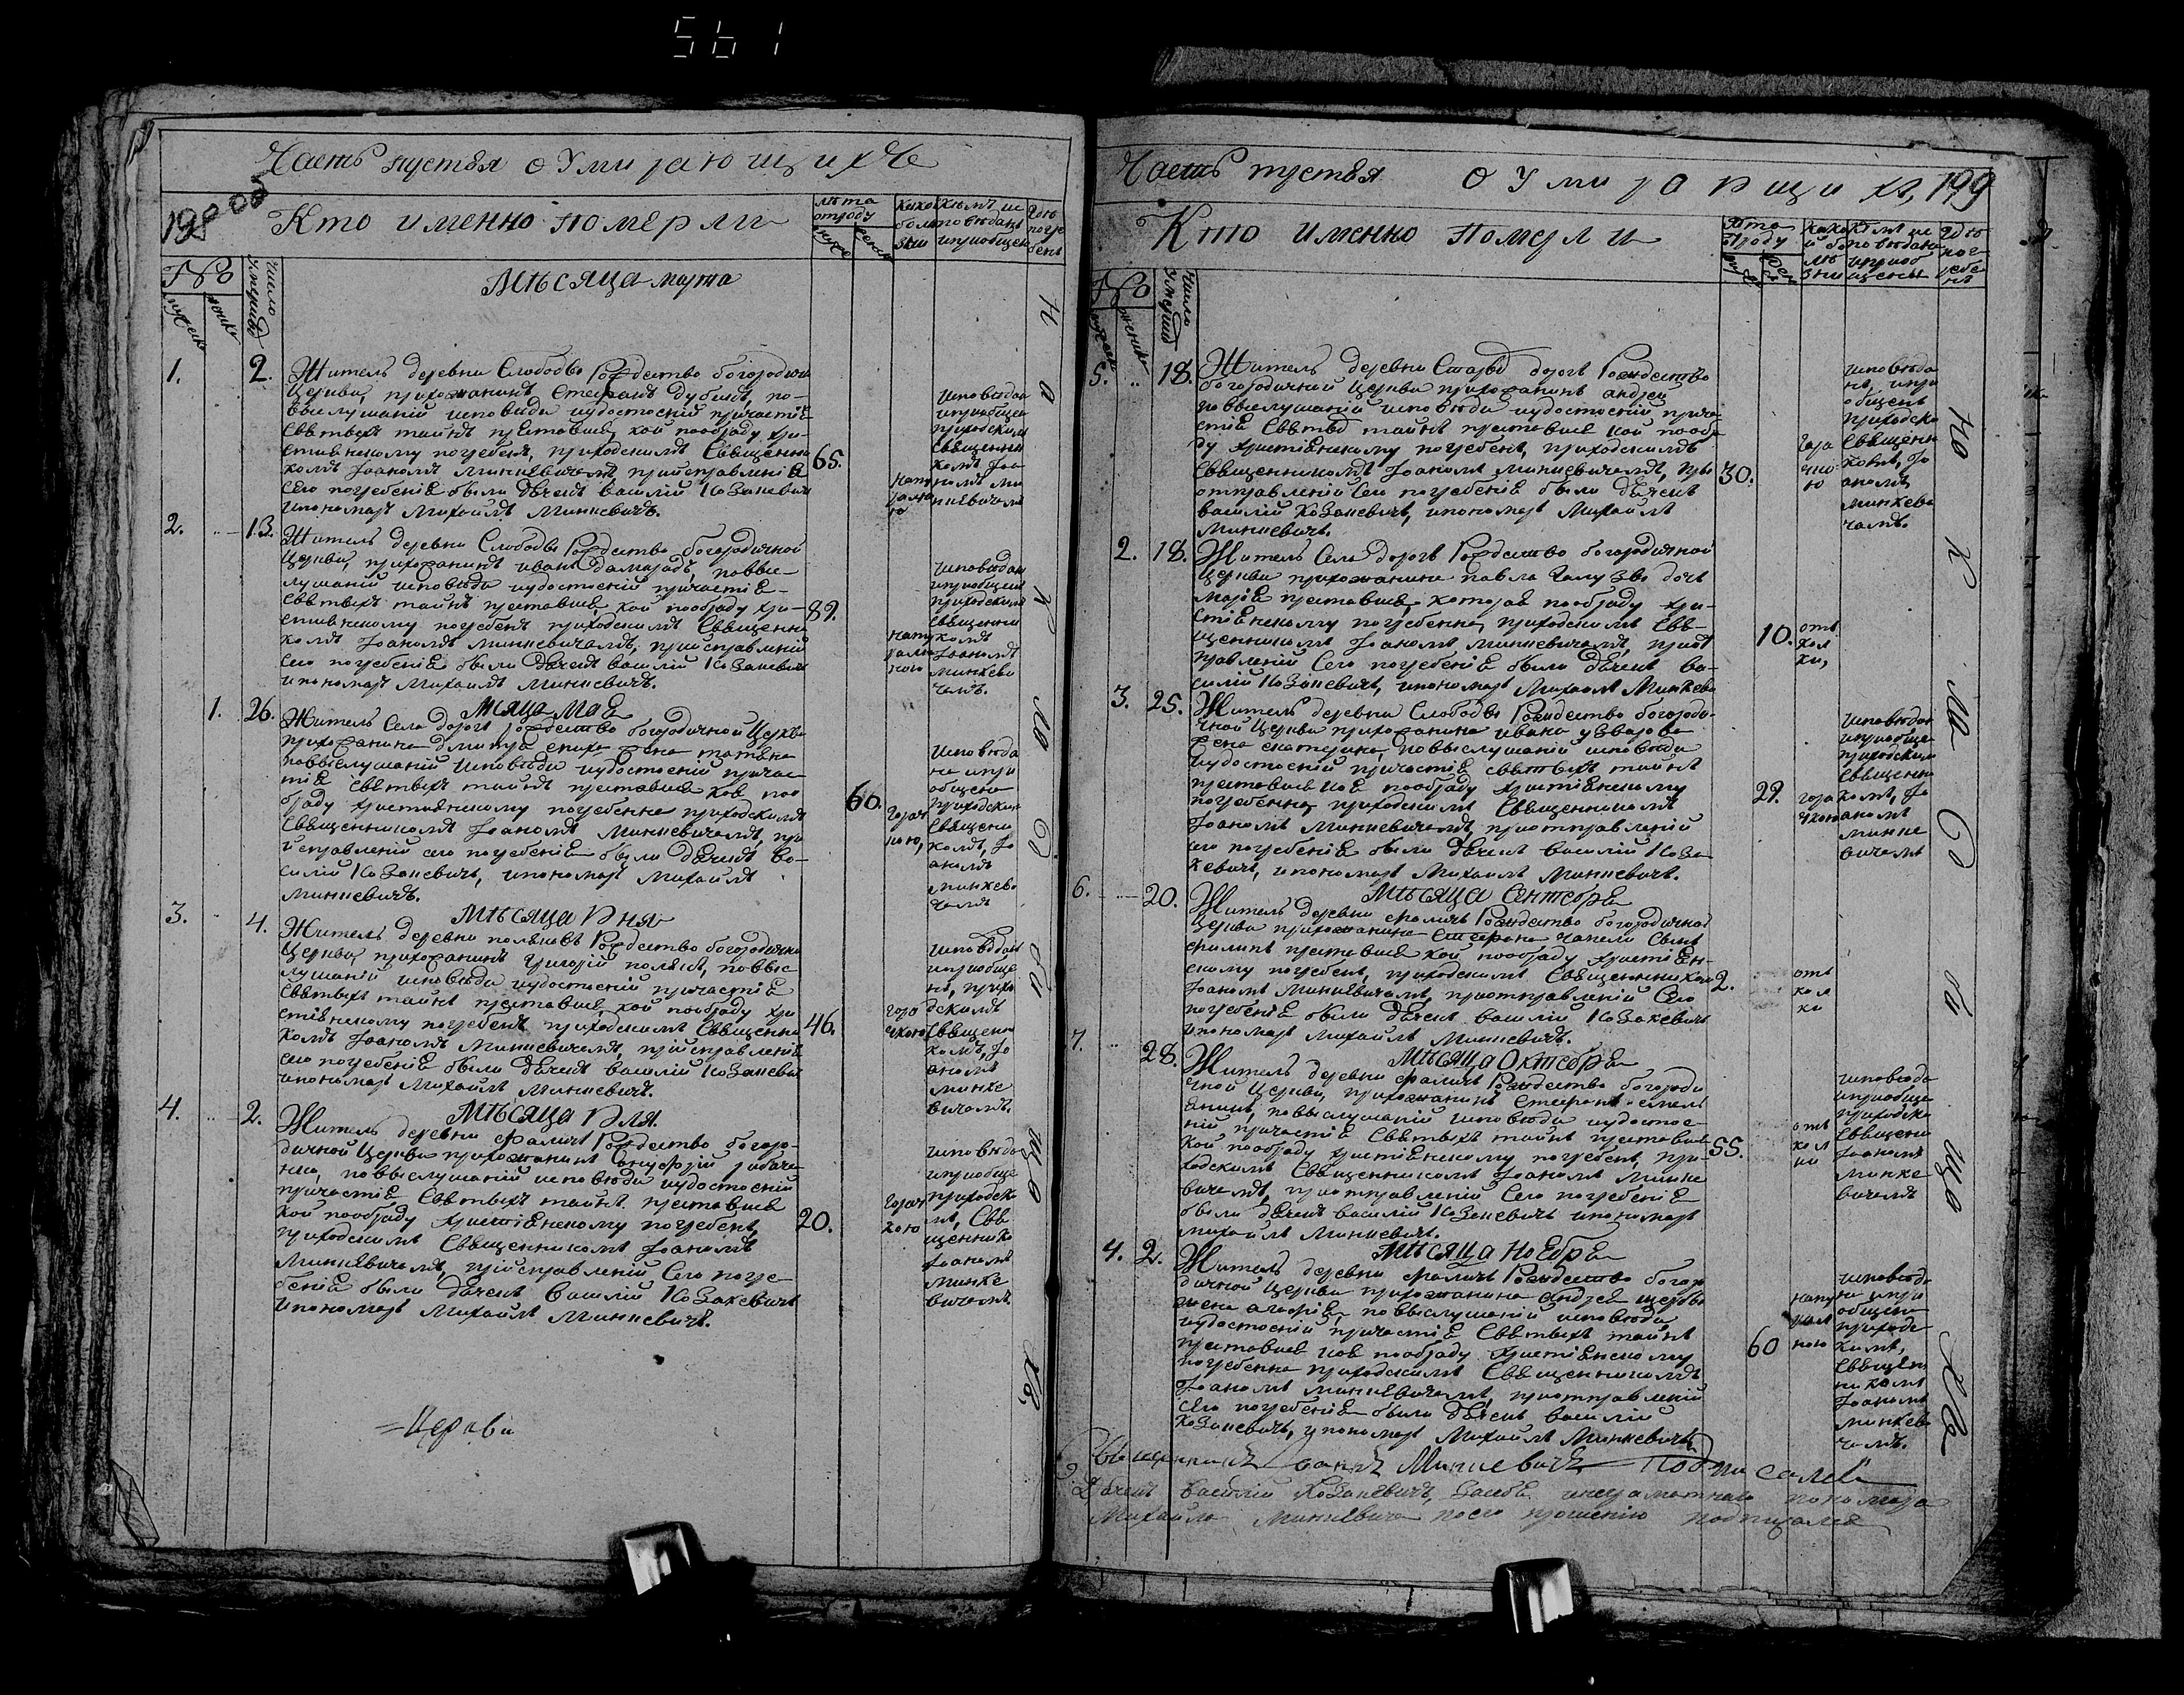 561
Часть третья о умирающихъ
198
Кто именно померли
лѣта отроду
мужска
женска
какой болезни
кѣмъ исповѣданъ и приобщен
Гдѣ погребенъ
№
мужска
женск
Число умерших
Мѣсяца марта
1. 2.
Житель деревни Слободы Рождество богородично
Церкви, прихожанинъ Стефанъ Дубикъ, по-
выслушаній исповѣди иудостоеній причастіѣ
Святыхъ тайнъ преставився, кой пообряду хри-
стиянскому погребенъ, приходскимъ Священни
комъ Іоаномъ Минкевичемъ приисправленіѣ
Сего погребеніѣ были дьячекъ василій Козакевич
ипономарь Михаилъ Минкевичъ.
65.
натуральною
исповѣдан
иприобщен
приходским
Священни
комъ Іоа
номъ Ми
нкевичемъ
2. 13.
Житель деревни Слободы Рождество богородичной
Церкви, прихожанинъ иванъ повыс-
лушаній исповѣди иудостоеній причастіѣ
Святыхъ тайнъ преставився, кой пообряду хри-
стиянскому погребенъ приходскимъ Священни
комъ Іоаномъ Минкевичемъ, приисправленій
Сего погребеніѣ были дьячекъ василій Козакевичъ
ипономарь Михаилъ Минкевичъ.
82.
исповѣдан
иприобщен
приходским
Священни
комъ
Іоаномъ
минкеви
чемъ.
Мсяца Маѣ
1. 26.
Житель Села дорогъ рождество богородичной Церкви
прихожанина дмитра жена татяна
повыслушаній исповѣди иудостоеній причас
тіѣ Святыхъ тайнъ преставився коя поо
бряду християнскому погребенна приходскимъ
Священникомъ Іоаномъ Минкевичемъ, при
исправленій сего погребеніѣ были дьячекъ ва-
силій Козакевичъ, ипономарь Михаилъ
Минкевичъ.
60.
горяч
кою,
исповѣда
на ипри
общена
приходским
Священи
комъ, Іо
аномъ
минкеви
чемъ
Мѣсяца Июня
3. 4.
Житель деревни Рождество богородично
Церкви, прихожанинъ Григорій полякъ, повыс
лушаній исповѣди иудостоеній причастіѣ
Святыхъ тайнъ преставився, кой пообряду хри
стиѣнскому погребенъ приходскимъ Священни
комъ Іоаномъ Минкевичемъ, приисправленіѣ
сего погребеніѣ были дьячекъ василій Козакевич
ипономарь Михаилъ Минкевичъ.
46.
горя
чкою
исповѣдан
иприобще
нъ, прихо
дскимъ
Священи
комъ, Іо
аномъ
минке
вичемъ.
Мѣсяца Июля.
4. 2.
Житель деревни фаличъ Рождество богоро-
дичной Церкви прихожанинъ
повыслушаній исповѣди иудостоеній
причастіѣ Святыхъ тайнъ преставився
кой пообряду христіѣнскому погребенъ
приходскимъ Священникомъ Іоаномъ
Минкевичемъ, приисправленій Сего погре-
беніѣ были дьячекъ василій Козакевичъ
ипономарь Михаилъ Минкевичъ.
20.
горяч
кою
исповѣда
иприобще
приходски
мъ, Свя
щеннико
Іоаномъ
минке
вичемъ
=Церкви
Часть третья о умирающихъ, 199
Кто именно померли
№
Число умерших
5. 18.
Житель деревни Старыѣ дорогъ Рождество
богородичной Церкви прихожанинъ андрей
повыслушаній исповѣди иудостоеній прича
стій Святыѣ тайнъ преставився кой пообр
ду христіѣнскому погребенъ, приходскимъ
Священникомъ Іоаномъ Минкевичемъ, при
отправленій Сего погребеніѣ были дьячекъ
василій Козакевичъ, ипономарь Михаилъ
Минкевичъ.
30.
горя
чко
ю
исповѣда
нъ, ипри
общенъ
приходски
Священи
комъ, Іо
аномъ
минкеви
чемъ.
2. 18.
Житель Села дорогъ Рождество богородичной
Церкви прихожанина павла дочь
Маріѣ преставився, котораѣ пообряду хри-
стіѣнскому погребенна, приходскимъ Свя-
щенникомъ Іоаномъ Минкевичемъ, приот
правленій Сего погребеніѣ были дьячекъ ва-
силій Козакевичъ, ипономарь Михаилъ Минкеви
10.
отъ
кол
ки,
3. 25.
Житель деревни Слободы Рождество богороди-
чной Церкви прихожанина ивана
жена екатерина, повыслушаній исповѣди
иудостоеній причастіѣ святыхъ тайнъ
преставився коѣ пообряду христіѣнскому
погребенна, приходскимъ Священникомъ
Іоаномъ Минкевичемъ, приотправленій
сего погребеніѣ были дьячекъ василій Коза
кевичъ, ипономарь Михаилъ Минкевичъ.
22.
горя
чкою
исповѣдан
иприобще
приходским
Священи
комъ, Іо
аномъ
минке
вичемъ
Мѣсяца Сентебрѣ
6. 20.
Житель деревни фаличъ Рождество богородичной
Церкви прихожанина Стефана Сынъ
филипъ преставився кой пообряду христіѣн-
скому погребенъ, приходскимъ Священникомъ
Іоаномъ Минкевичемъ, приотправленій Сего
погребеніѣ были дьячекъ василій Козакевичъ
ипономарь Михаилъ Минкевичъ.
2.
отъ
кол
ки
Мѣсяца Октебрѣ
7. 28.
Житель деревни фаличъ Рождество богороди
чной Церкви, прихожанинъ Стефанъ
повыслушаній исповѣди иудостое-
ній причастіѣ Святыхъ тайнъ преставився
кой пообряду христіѣнскому погребенъ, при-
ходскимъ Священникомъ Іоаномъ Минке
вичемъ, приотправленій Сего погребеніѣ
были дьячекъ василій Козакевичъ ипономарь
михаилъ Минкевичъ.
55.
отъ
кол
ки
исповѣда
иприобще
приходски
Священи
Іоаномъ
минке
вичемъ
Мѣсяца Ноѣбрѣ
4. 2.
Житель деревни фаличъ Рождество богоро
дичной Церкви прихожанина андрея
жена агафіѣ, повыслушаній исповѣди
иудостоеній причастіѣ Святыхъ тайнъ
преставився коя пообряду христіѣнскому
погребенна приходскимъ Священникомъ
Іоаномъ Минкевичемъ, приотправленій
сего погребеніѣ были дьячекъ василій
Козакевичъ, ипономарь Михаилъ Минкевичъ
60
исповѣда
на ипри
общена
приходс
кимъ,
Священ
никомъ
Іоаномъ
минкеви
чемъ.
Священникъ Іоанъ Минкевичъ Подписалсѣ
Дьячекъ василій Козакевичъ, засебѣ инеграмотнаго пономаря
Михаила Минкевича поего прошению подписалсѣ